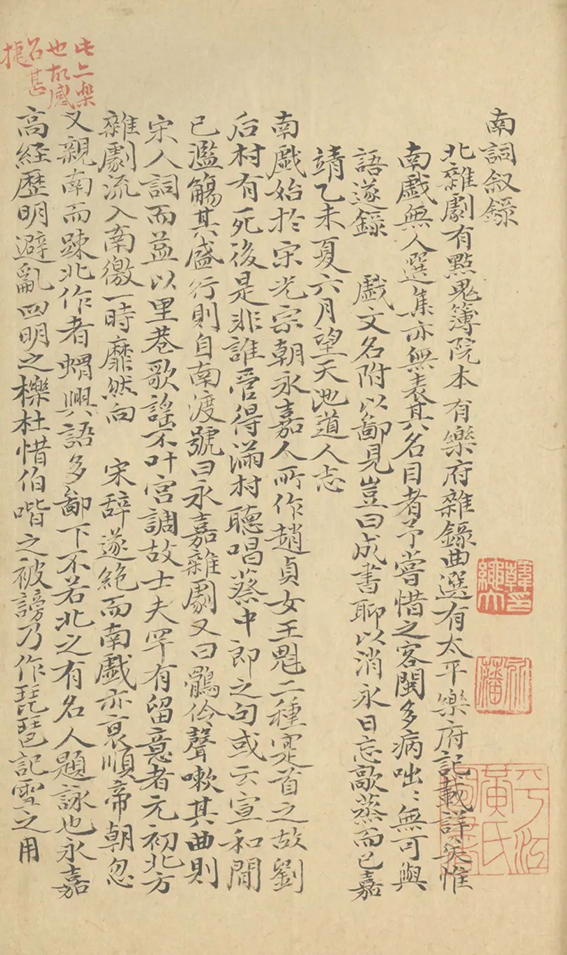 南詞叙錄
北雜劇有點鬼簿院本有樂府雜錄曲選有太平樂府記載詳矣惟
南戲無人選集亦無表其名目者予嘗惜之客閩多病咄〻無可與
語遂錄 戲文名附以鄙見豈曰成書聊以消永日忘歊蒸而已嘉
靖乙未夏六月望天池道人志
南戲始於宋光宗朝永嘉人所作趙貞女王魁二種寔首之故劉
后村有死後是非誰管得滿村聽唱蔡中郎之句或云宣和間
已濫觴其盛行則自南渡號曰永嘉雜劇又曰鶻伶聲嗽其曲則
宋人詞而益以里巷歌謠不叶宮調故士夫罕有留意者元初北方
雜劇流入南徼一時靡然向 宋辞遂絕而南戲亦衰順帝朝忽
又親南而踈北作者蝟興語多鄙下不若北之有名人題詠也永嘉
高經歷明避亂四明之櫟社惜伯喈之被謗乃作琵琶記雪之用
平江
黃氏